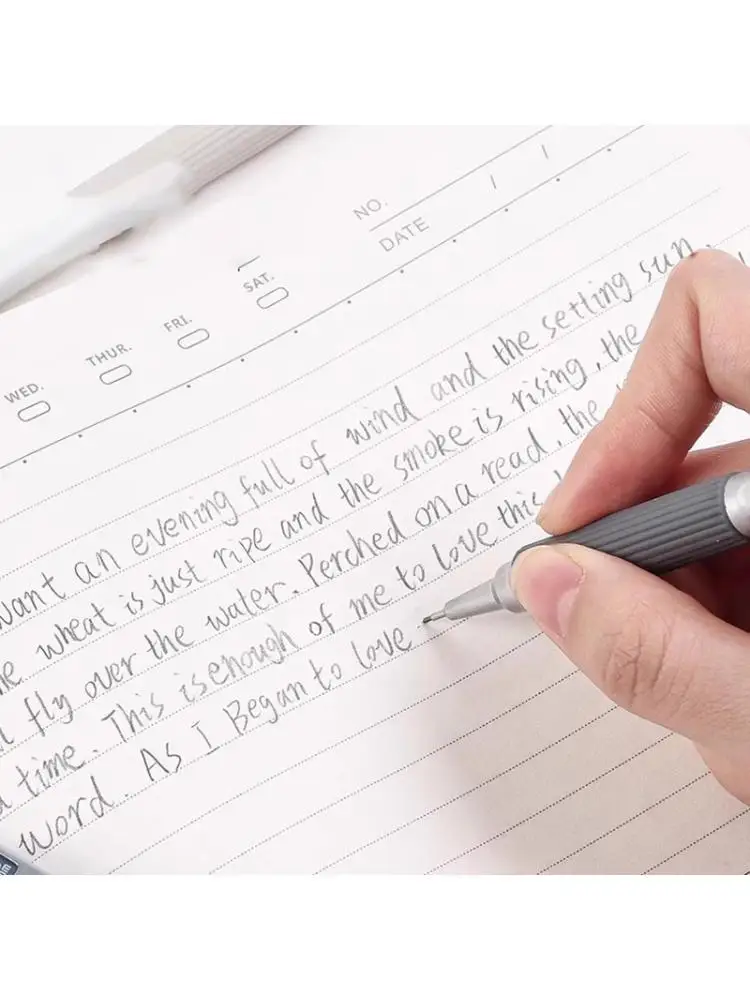 NO.
DATE / /
WED. THUR. FRI. SAT.
want an evening full of wind and the setting sun,
wheat is just ripe and the smoke is rising, the
fly over the water. Perched on a read, the
time. This is enough of me to love this
word. As I Began to love